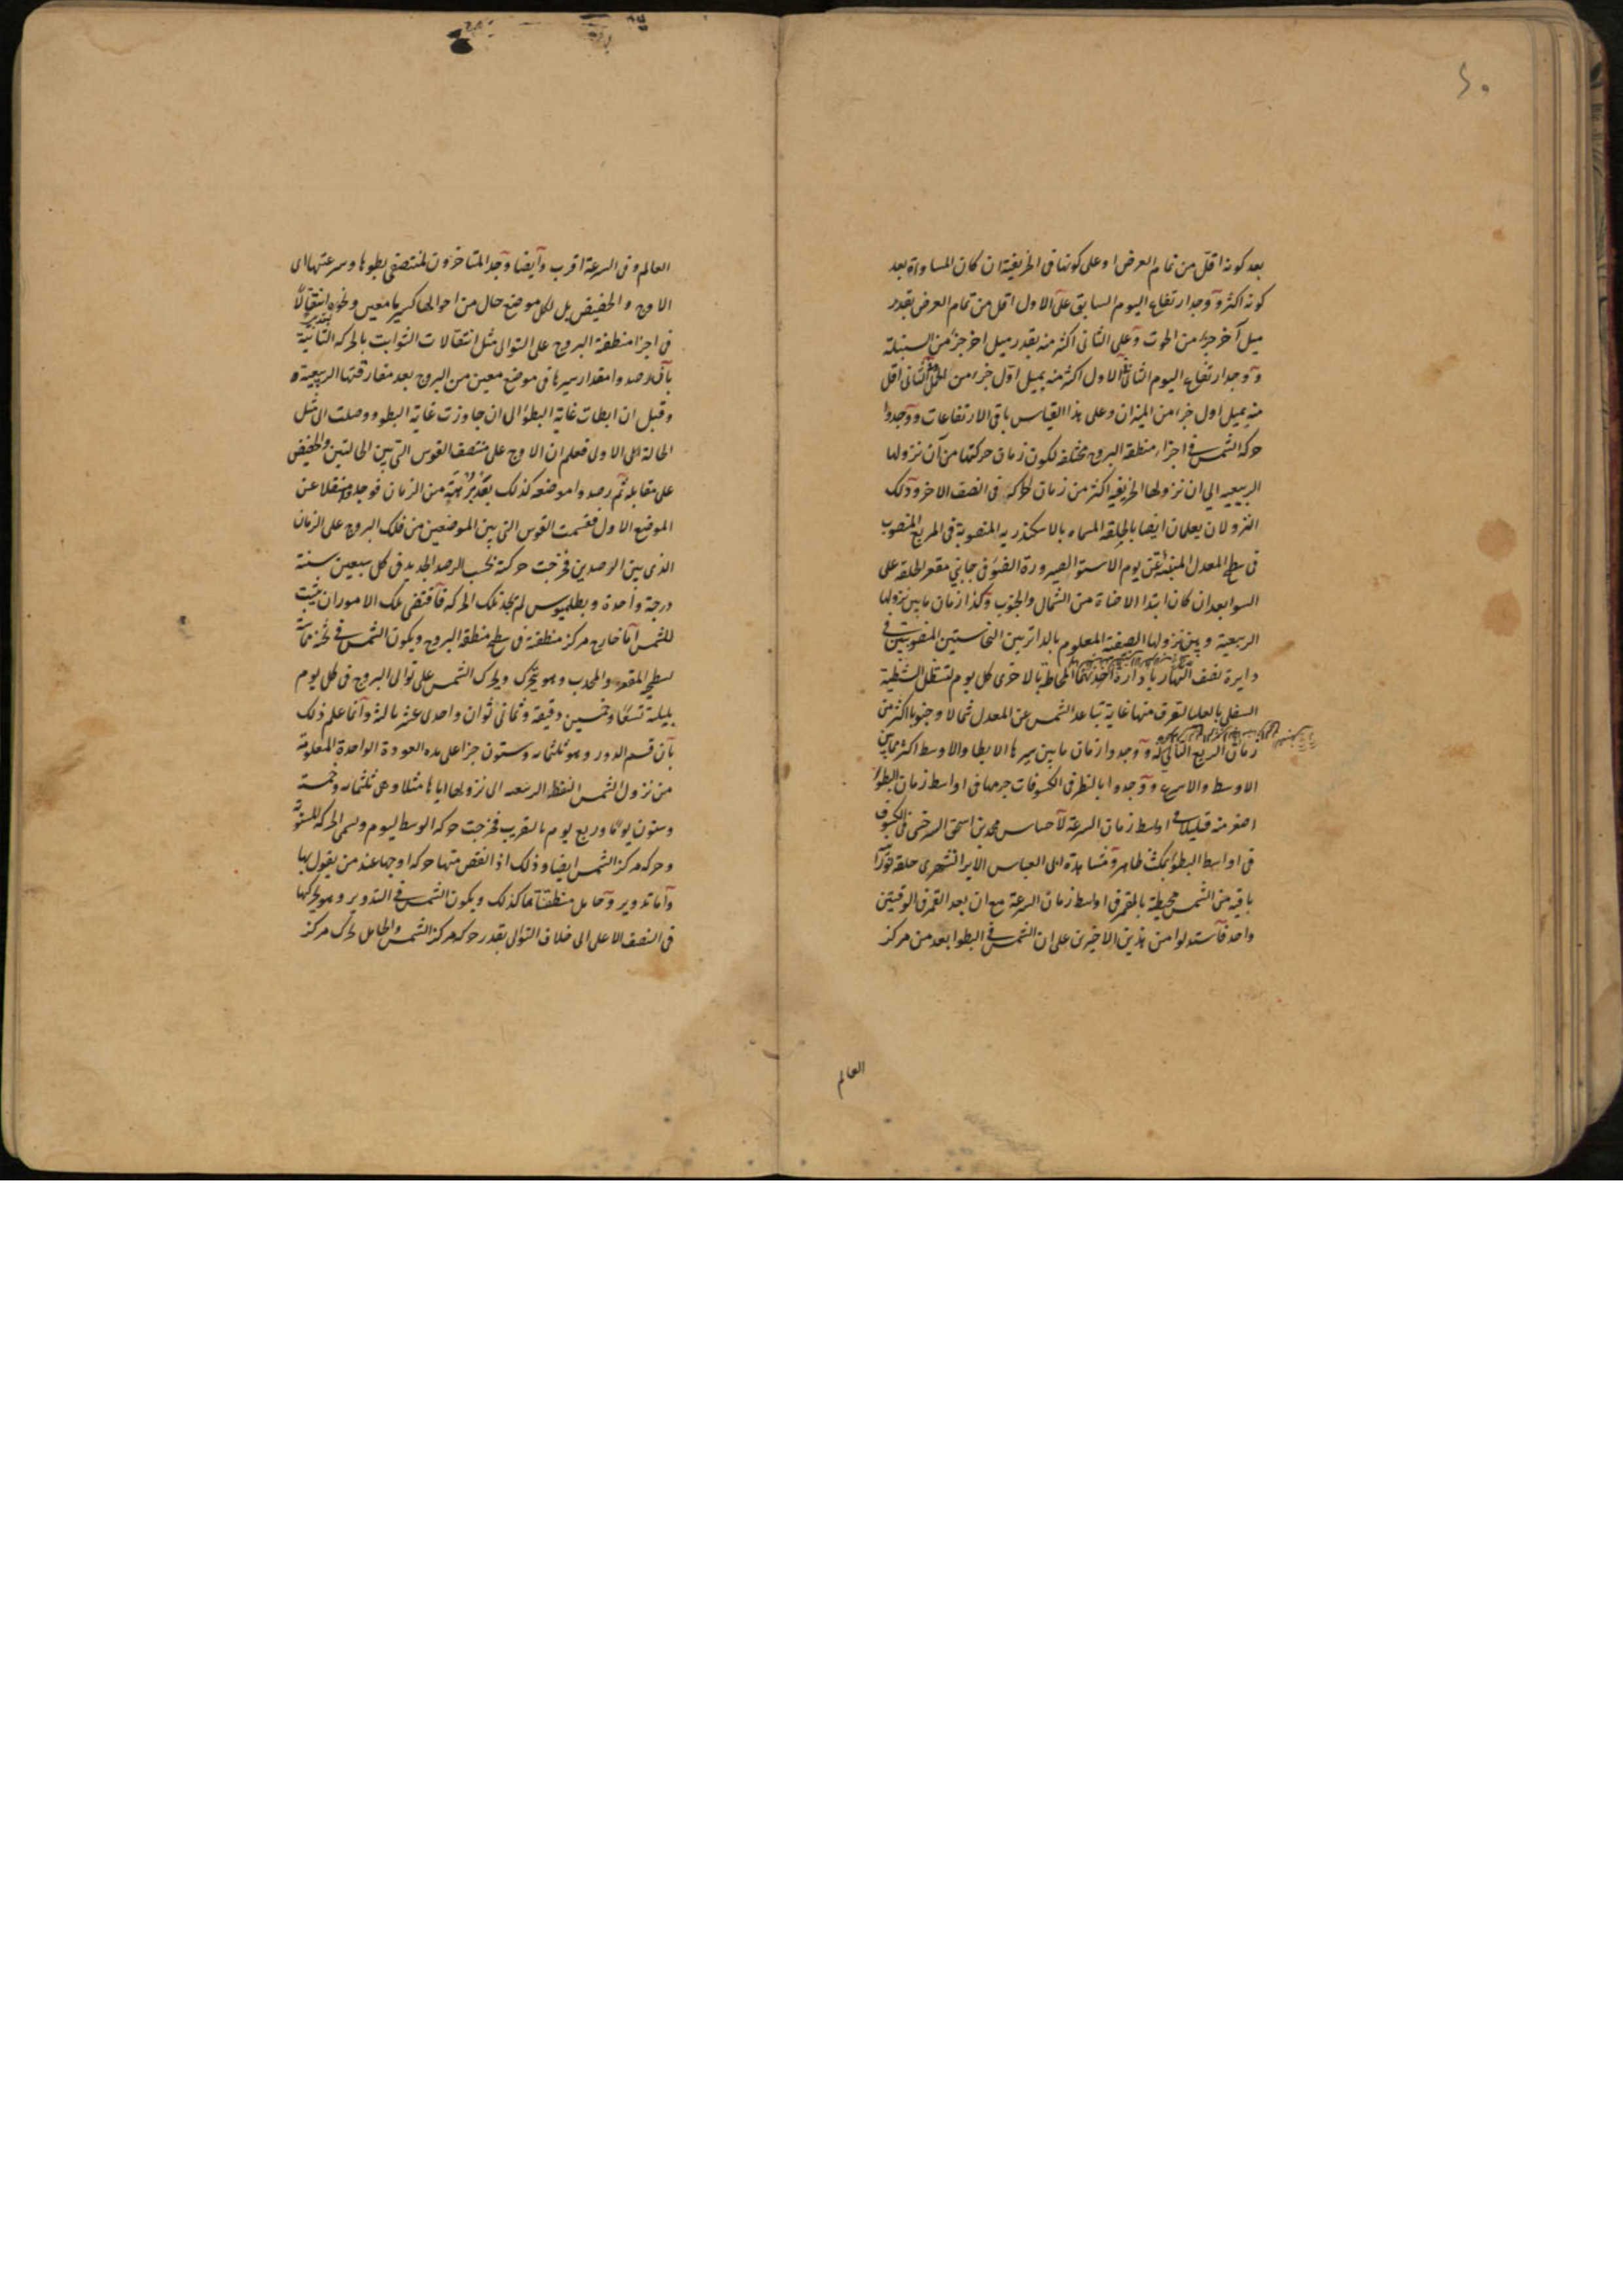 ٤٠
بعد كونه اقل من تمام العرض او على كونها فى الخريفية ان كان المساواة بعد
كونه اكثر ووجد ارتفاع اليوم السابق على الاول اقل من تمام العرض بقدر
ميل آخر جزء من الحوت وعلى الثانى اكثر منه بقدر ميل اخر جزء من السنبلة
ووجد ارتفاع اليوم الثانى على الاول اكثر منه بميل اول جزء من الحمل وعلى الثانى اقل
منه بميل اول جزء من الميزان وعلى هذا القياس باقى الارتفاعات ووجدوا
حركة الشمس فى اجزاء منطقة البروج مختلفة لكون زمان حركتها من آن نزولها
الربيعيه الى ان نزولها الخريفيه اكثر من زمان حركة فى النصف الاخر وذلك
النزولان يعلمان ايضا بالحلقة المسماه بالاسكندريه المنصوبة فى المربع المنصوب
فى سطح المعدل المنبئة عن يوم الاستوا لصيرورة الضوء فى جانبي مقعر الحلقة على
السوا بعد ان كان ابتدا الاضاة من الشمال والجنوب وكذا زمان ما بين نزولها
الربيعية وبين نزولها الصيفية المعلوم بالدائرتين النحاستين المنصوبتين فى
دايرة نصف النهار بادارة المحاط بالاخرى كل يوم لتستظل الشظية
السفلى بالعليا لتعرف منها غاية تباعد الشمس عن المعدل شمالا وجنوبا اكثر من
زمان الربع التالي له ووجدوا زمان ما بين سيرها الابطا والاوسط اكثر مما بين
الاوسط والاسرع ووجدوا بالنظر فى الكسوفات جرمها فى اواسط زمان البطؤ
اصغر منه قليلا فى اواسط زمان السرعة لاحساس محمد بن اسحق السرخسى فى الكسوف
فى اواسط البطؤ بمكث ظاهر ومشاهدة ابى العباس الايرانشهرى حلقة نور
باقيه من الشمس محيطة بالقمر فى اواسط زمان السرعة مع ان بعد القمر فى الوقتين
واحد فاستدلوا من هذين الاخيرين على ان الشمس فى البطوا بعد من مركز
العالم
العالم وفى السرعة اقرب وايضا وجد المتاخرون لمنتصفى بطوها وسرعتها اى
الاوج والحضيض بل لكل موضع حال من احوالها كسير ما معين ونحوه انتقالا
فى اجزا منطقة البروج على التوالى مثل انتقالات الثوابت بالحركة الثانية
بان رصدوا مقدار سيرها فى موضع معين من البروج بعد مفارقتها الربيعية
وقبل ان ابطات غاية البطؤ الى ان جاوزت غاية البطو ووصلت الى مثل
الحالة الاولى فعلم ان الاوج على منتصف القوس التى بين الحالتين والحضيض
على مقابله ثم رصدوا موضعه كذلك بعد برهة من الزمان فوجدوه منتقلا عن
الموضع الاول فقسمت القوس التى بين الموضعين من فلك البروج على الزمان
الذى بين الرصدين فخرجت حركته بحسب الرصد الجديد فى كل سبعين سنة
درجة واحدة وبطلميوس لم يجد تلك الحركة فاقتضى تلك الامور ان يثبت
للشمس اما خارج مركز منطقته فى سطح منطقة البروج ويكون الشمس فى ثخنه مماسة
لسطحي المقعر والمحدب وهو يتحرك ويحرك الشمس على توالى البروج فى كل يوم
بليلته تسعا وخمسين دقيقة وثمانى ثوان واحدى عشرة ثالثة وانما علم ذلك
بان قسم الدور وهو ثلثمائه وستون جزا على مدة العودة الواحدة المعلومة
من نزول الشمس النقطة الربيعيه الى نزولها اياها مثلا وهى ثلثمائه وخمسة
وستون يوما وربع يوم بالتقريب فخرجت حركة الوسط ليوم ويسمى الحركة المستوية
وحركة مركز الشمس ايضا وذلك اذا نقص منها حركة اوجها عند من يقول بها
واما تدوير وحامل منطقتاهما كذلك ويكون الشمس فى التدوير وهو يحركها
فى النصف الاعلى الى خلاف التوالى بقدر حركة مركز الشمس والحامل يحرك مركز